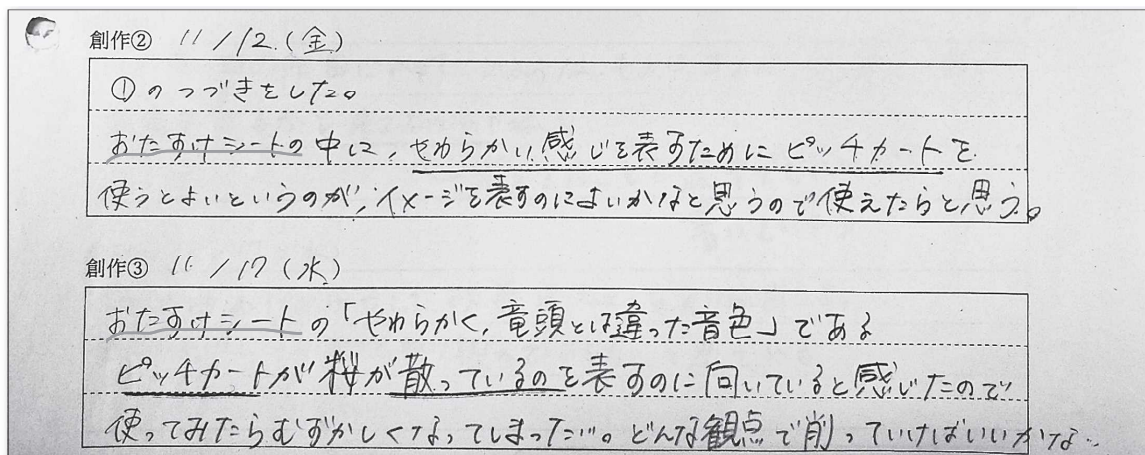 創作② 11/12.(金)
①のつづきをした。
おたすけシートの中に、やわらかい感じを表すためにピッチカートを
使うとよいというのが、イメージを表すのによいかなと思うので使えたらと思う。
創作③ 11/17(水)
おたすけシートの「やわらかく,竜頭とは違った音色」である
ピッチカートが桜が散っているのを表すのに向いていると感じたので
使ってみたらむずかしくなってしまった…。どんな観点で削っていけばいいかな…